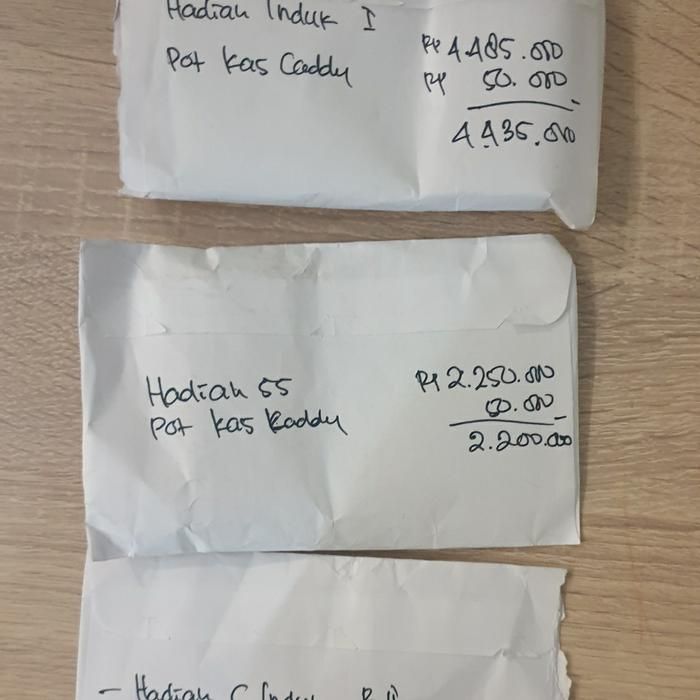 Hadiah Induk I Rp 4.485.000
Pot Kas Caddy Rp 50.000
4.435.000
Hadiah 55 Rp 2.250.000
Pot Kas Kaddy 50.000
2.200.000
- Hadiah C Induk